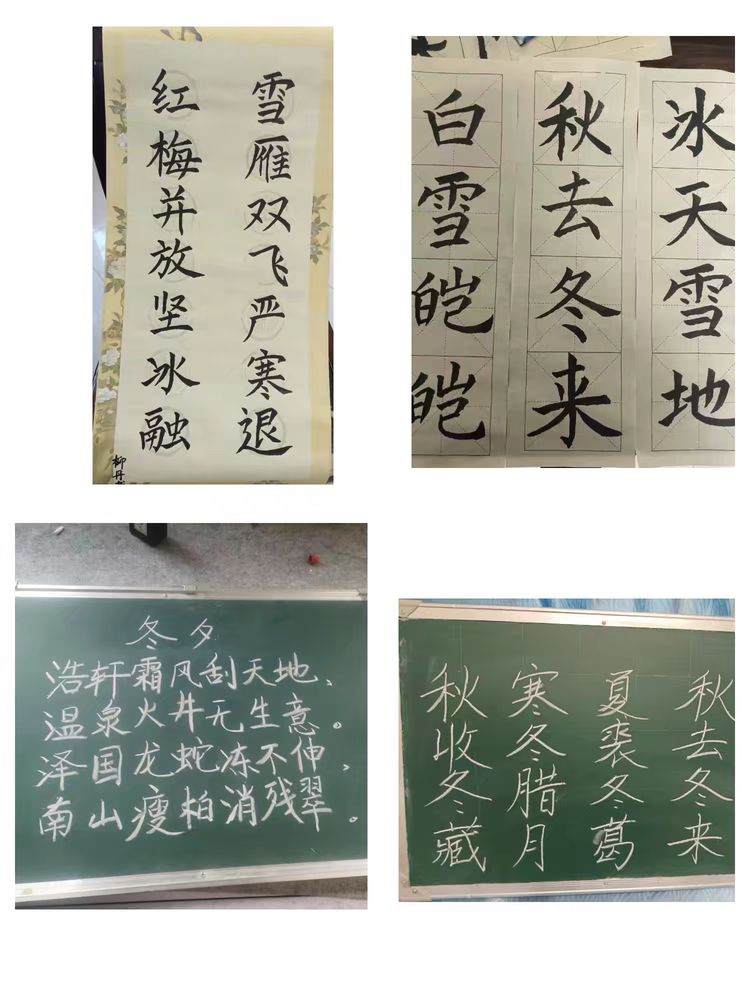 雪雁双飞严寒退
红梅并放坚冰融
柳丹
冰天雪地
秋去冬来
白雪皑皑
冬夕
浩轩霜风刮天地、
温泉火井无生意。
泽国龙蛇冻不伸、
南山瘦柏消残翠。
秋去冬来
夏裘冬葛
寒冬腊月
秋收冬藏